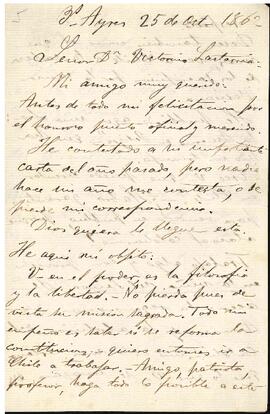 Bs Ayres 25 de Oct. 1862
Señor Dn Victorino Lastarria
Mi amigo muy querido:
Antes de todo mi felicitacion por
el honroso puesto oficial y merecido.
He contestado a su importante
carta del año pasado, pero nadie
hace un año me contesta, o se
pierde mi correspondencia.
Dios quiera le llegue esta.
He aqui mi objeto:
V en el poder, es la filosofia
y la libertad. No pierda pues de
vista su mision sagrada. Todo mi
empeño es saber si se reforma la
constitucion, quiero entonces ir a
Chile a trabajar. Amigo, patriota,
profesor, haga todo lo posible a este